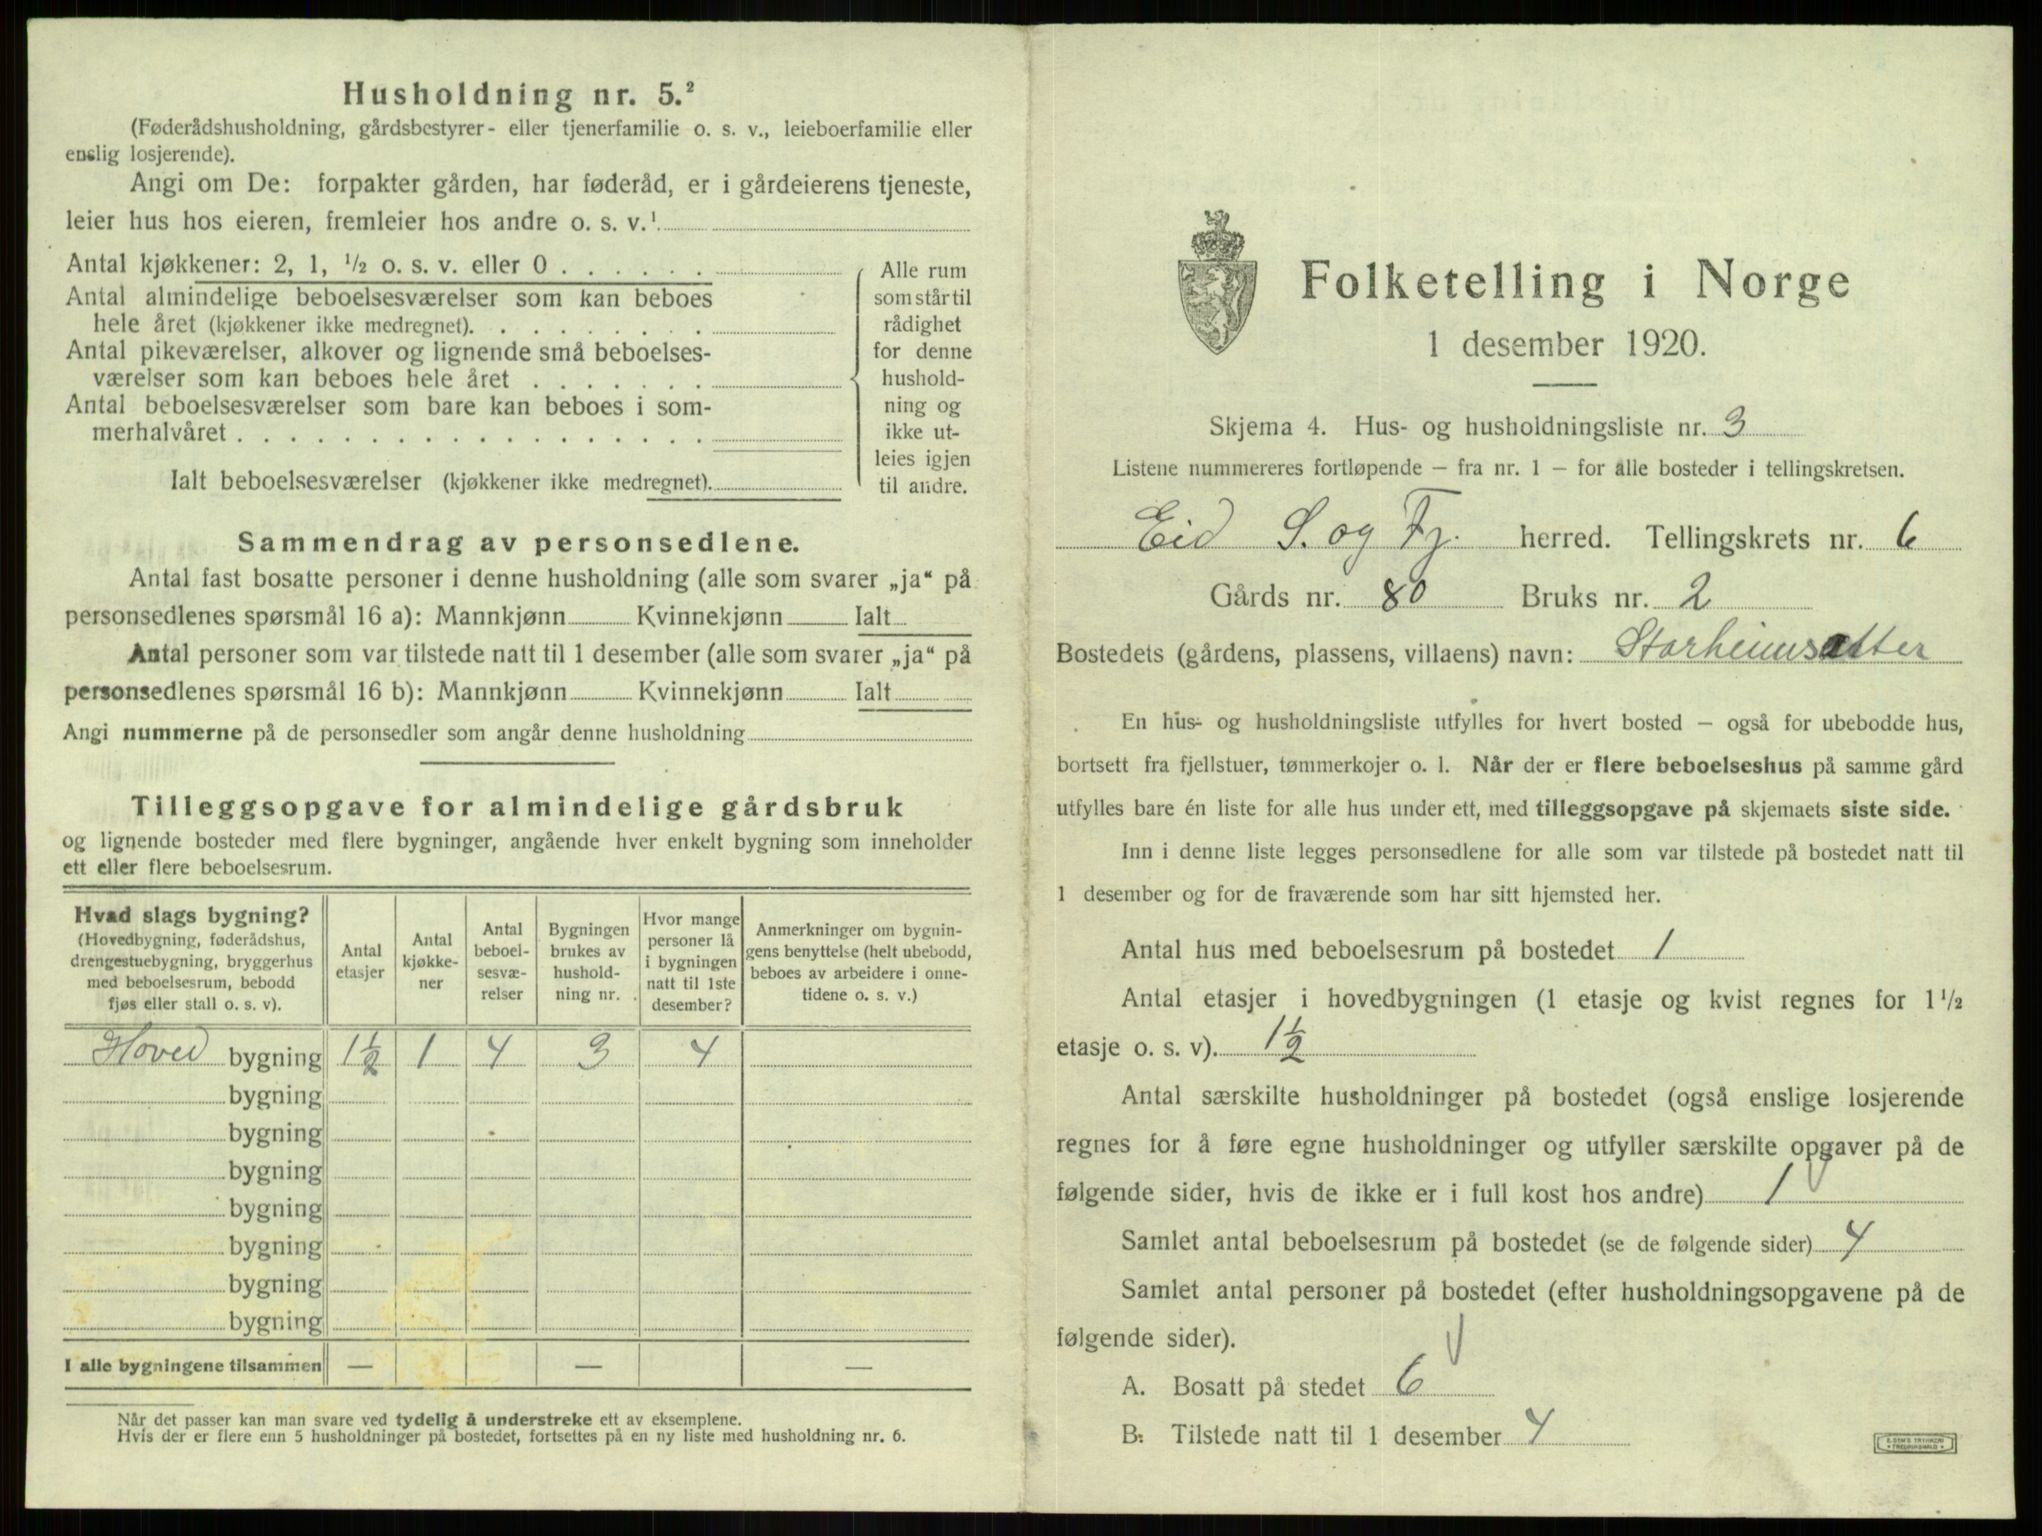 Husholdning nr. 5.²
(Føderådshusholdning, gårdsbestyrer- eller tjenerfamilie o. s. v., leieboerfamilie eller
enslig losjerende).
Angi om De: forpakter gården, har føderåd, er i gårdeierens tjeneste,
leier hus hos eieren, fremleier hos andre o. s. v.¹
Antal kjøkkener: 2, 1, ½ o. s. v. eller 0 . . . . . .
Antal almindelige beboelsesværelser som kan beboes
hele året (kjøkkener ikke medregnet). . . . . . . . .
Antal pikeværelser, alkover og lignende små beboelses-
værelser som kan beboes hele året . . . . . . .
Antal beboelsesværelser som bare kan beboes i som-
merhalvåret . . . . . . . . . . . . . . . . . .
Ialt beboelsesværelser (kjøkkener ikke medregnet).
Alle rum
som står til
rådighet
for denne
hushold-
ning og
ikke ut-
leies igjen
til andre.
Sammendrag av personsedlene.
Antal fast bosatte personer i denne husholdning (alle som svarer „ja“ på
personsedlenes spørsmål 16 a): Mannkjønn Kvinnekjønn Ialt
Antal personer som var tilstede natt til 1 desember (alle som svarer „ja“ på
personsedlenes spørsmål 16 b): Mannkjønn Kvinnekjønn Ialt
Angi nummerne på de personsedler som angår denne husholdning
Tilleggsopgave for almindelige gårdsbruk
og lignende bosteder med flere bygninger, angående hver enkelt bygning som inneholder
ett eller flere beboelsesrum.
Hvad slags bygning?
(Hovedbygning, føderådshus,
drengestuebygning, bryggerhus
med beboelsesrum, bebodd
fjøs eller stall o. s. v).
Antal
etasjer
Antal
kjøkke-
ner
Antal
beboel-
sesvæ-
relser
Bygningen
brukes av
hushold-
ning nr.
Hvor mange
personer lå
i bygningen
natt til 1ste
desember?
Anmerkninger om bygnin-
gens benyttelse (helt ubebodd,
beboes av arbeidere i onne-
tidene o. s. v.)
Hoved bygning 1½ 1 4 3 4
bygning
bygning
bygning
bygning
bygning
bygning
bygning
I alle bygningene tilsammen — — —
Når det passer kan man svare ved tydelig å understreke ett av eksemplene.
Hvis der er flere enn 5 husholdninger på bostedet, fortsettes på en ny liste med husholdning nr. 6.
Folketelling i Norge
1 desember 1920.
Skjema 4. Hus- og husholdningsliste nr. 3
Listene nummereres fortløpende – fra nr. 1 – for alle bosteder i tellingskretsen.
Eid S. og Fj. herred. Tellingskrets nr. 6
Gårds nr. 80 Bruks nr. 2
Bostedets (gårdens, plassens, villaens) navn: Storheimsætter
En hus- og husholdningsliste utfylles for hvert bosted – også for ubebodde hus,
bortsett fra fjellstuer, tømmerkojer o. l. Når der er flere beboelseshus på samme gård
utfylles bare én liste for alle hus under ett, med tilleggsopgave på skjemaets siste side.
Inn i denne liste legges personsedlene for alle som var tilstede på bostedet natt til
1 desember og for de fraværende som har sitt hjemsted her.
Antal hus med beboelsesrum på bostedet 1
Antal etasjer i hovedbygningen (1 etasje og kvist regnes for 1½
etasje o. s. v). 1½
Antal særskilte husholdninger på bostedet (også enslige losjerende
regnes for å føre egne husholdninger og utfyller særskilte opgaver på de
følgende sider, hvis de ikke er i full kost hos andre) 1
Samlet antal beboelsesrum på bostedet (se de følgende sider) 4
Samlet antal personer på bostedet (efter husholdningsopgavene på de
følgende sider).
A. Bosatt på stedet 6
B. Tilstede natt til 1 desember 4